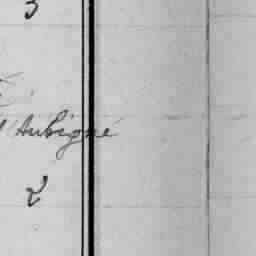 3
d'Aubigné
2